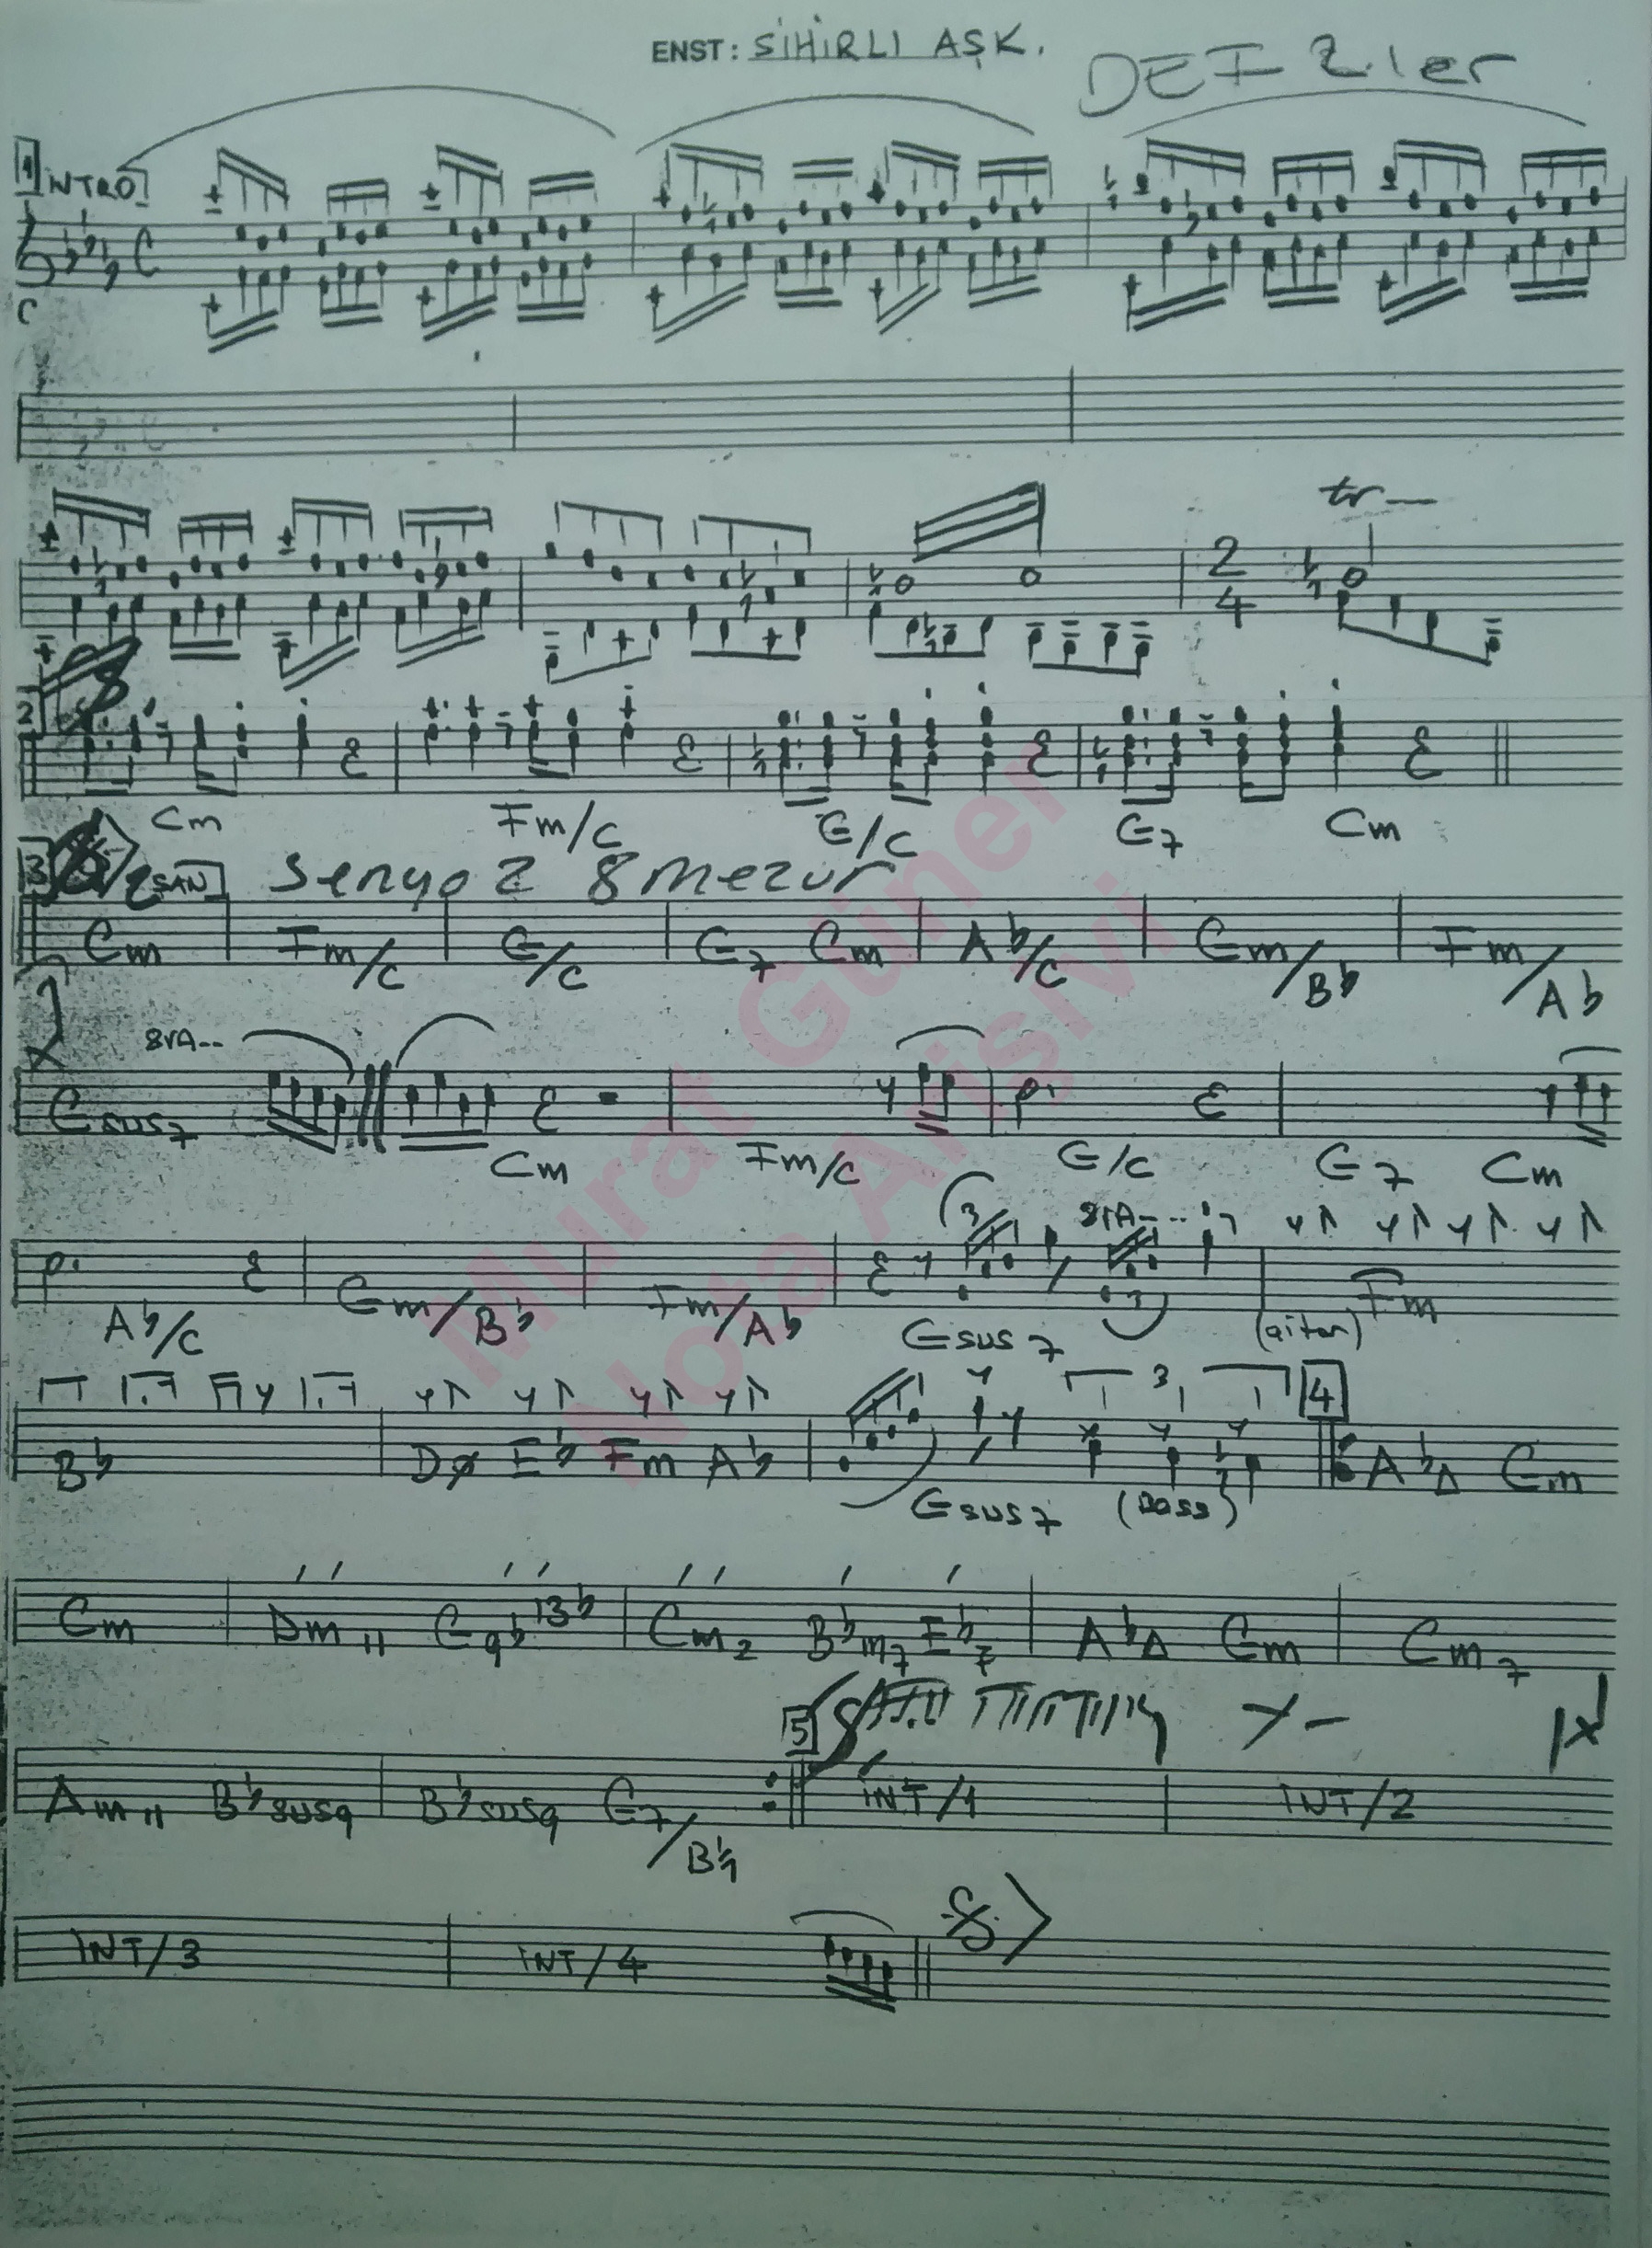 ENST: SİHİRLİ AŞK.
DEF Ziler
1 INTRO
C
tr
2 4
2
Cm Fm/C G/C G7 Cm
3 ŞAN Senyo 2 8 mezur
Cm Fm/C G/C G7 Cm A♭/C Gm/B♭ Fm/A♭
8VA--
Gsus7 Cm Fm/C G/C G7 Cm
3 8VA---
A♭/C Gm/B♭ Fm/A♭ Gsus7 3 (gitar) Fm
3 4
B♭ Dø E♭ Fm A♭ Gsus7 (Bass) A♭Δ Gm
Cm Dm11 G9♭13♭ Cm2 B♭m7 E♭7 A♭Δ Gm Cm7
5
Am11 B♭sus9 B♭sus9 G7/B♮ İNT/1 İNT/2
İNT/3 İNT/4
Murat Güner
Nota Arşivi